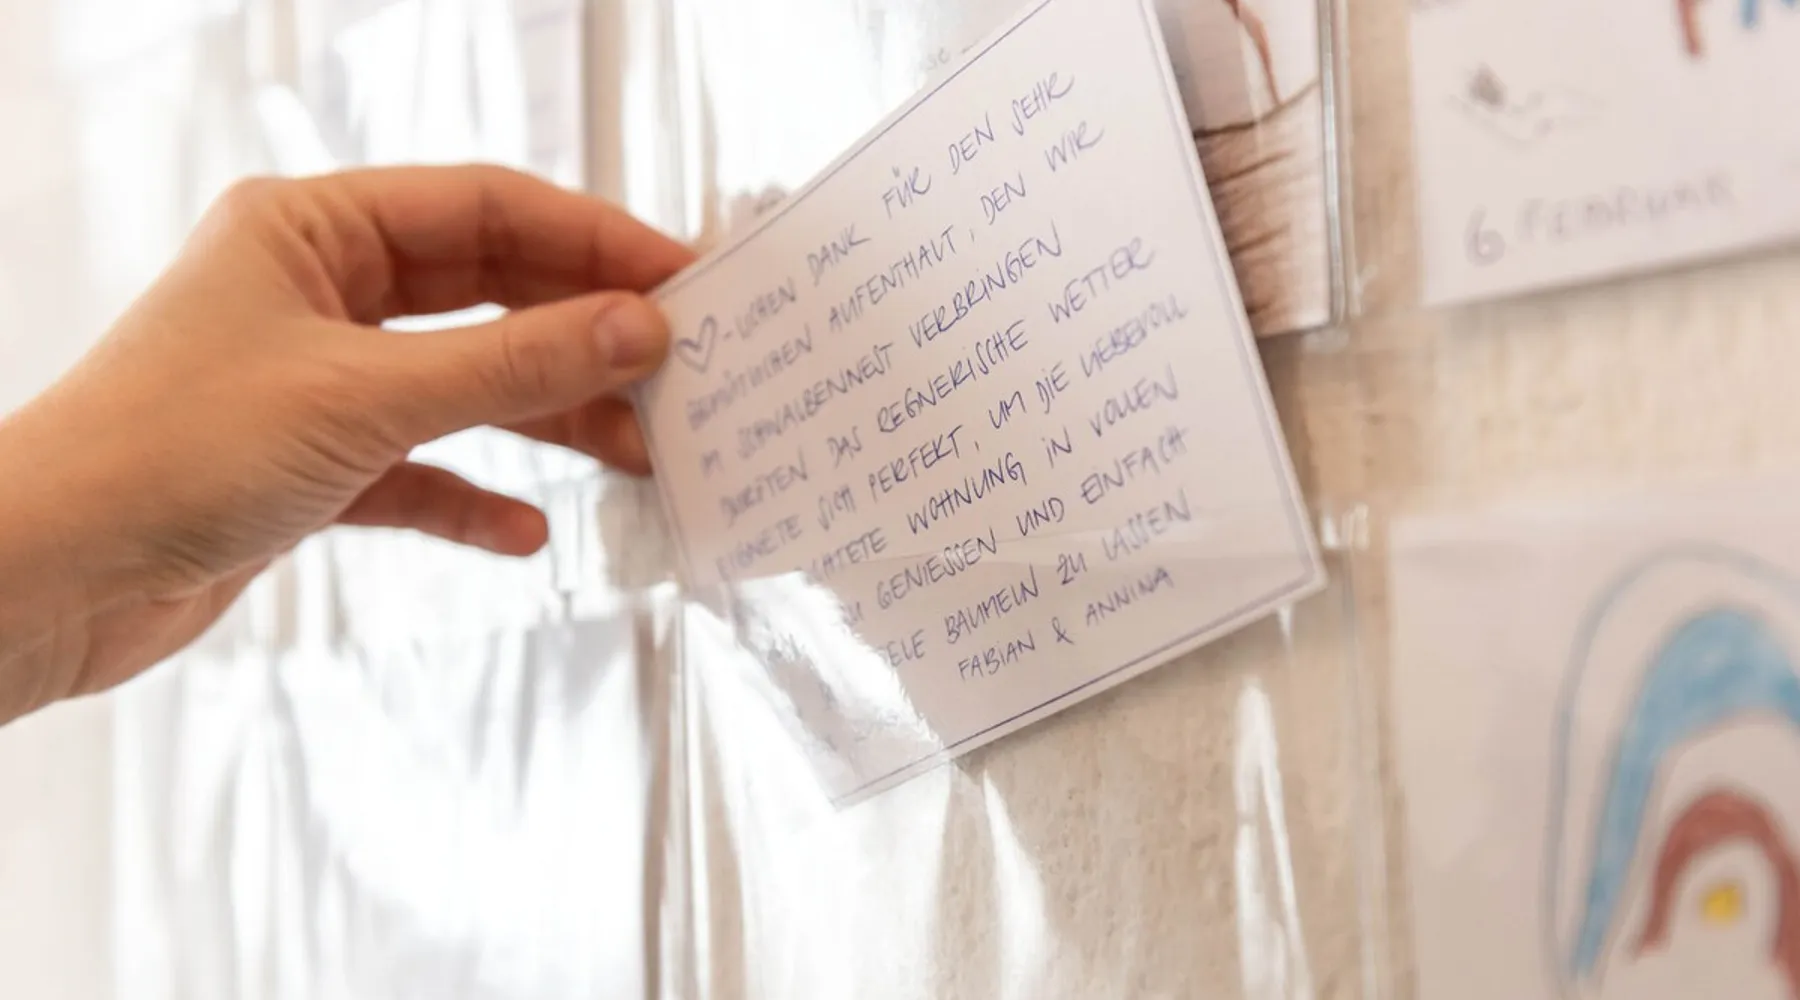 ♡-LICHEN DANK FÜR DEN SEHR
GEMÜTLICHEN AUFENTHALT, DEN WIR
IM SCHWALBENNEST VERBRINGEN
DURFTEN DAS REGNERISCHE WETTER
EIGNETE SICH PERFEKT, UM DIE LIEBEVOLL
WOHNUNG IN VOLLEN
ZU GENIESSEN UND EINFACH
BAUMELN ZU LASSEN
FABIAN & ANNINA
6. FEBRUAR